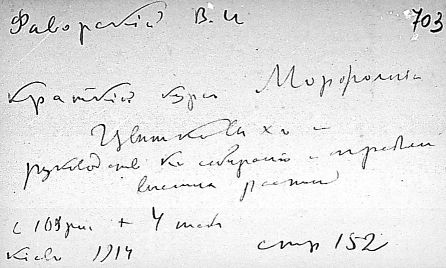 Фаворский В. И 703
Краткий курс Морфологии
Цветковых –
руководство к собиранию и определен
растений
с 108 рис + 4 табл
Киев 1914 стр 152